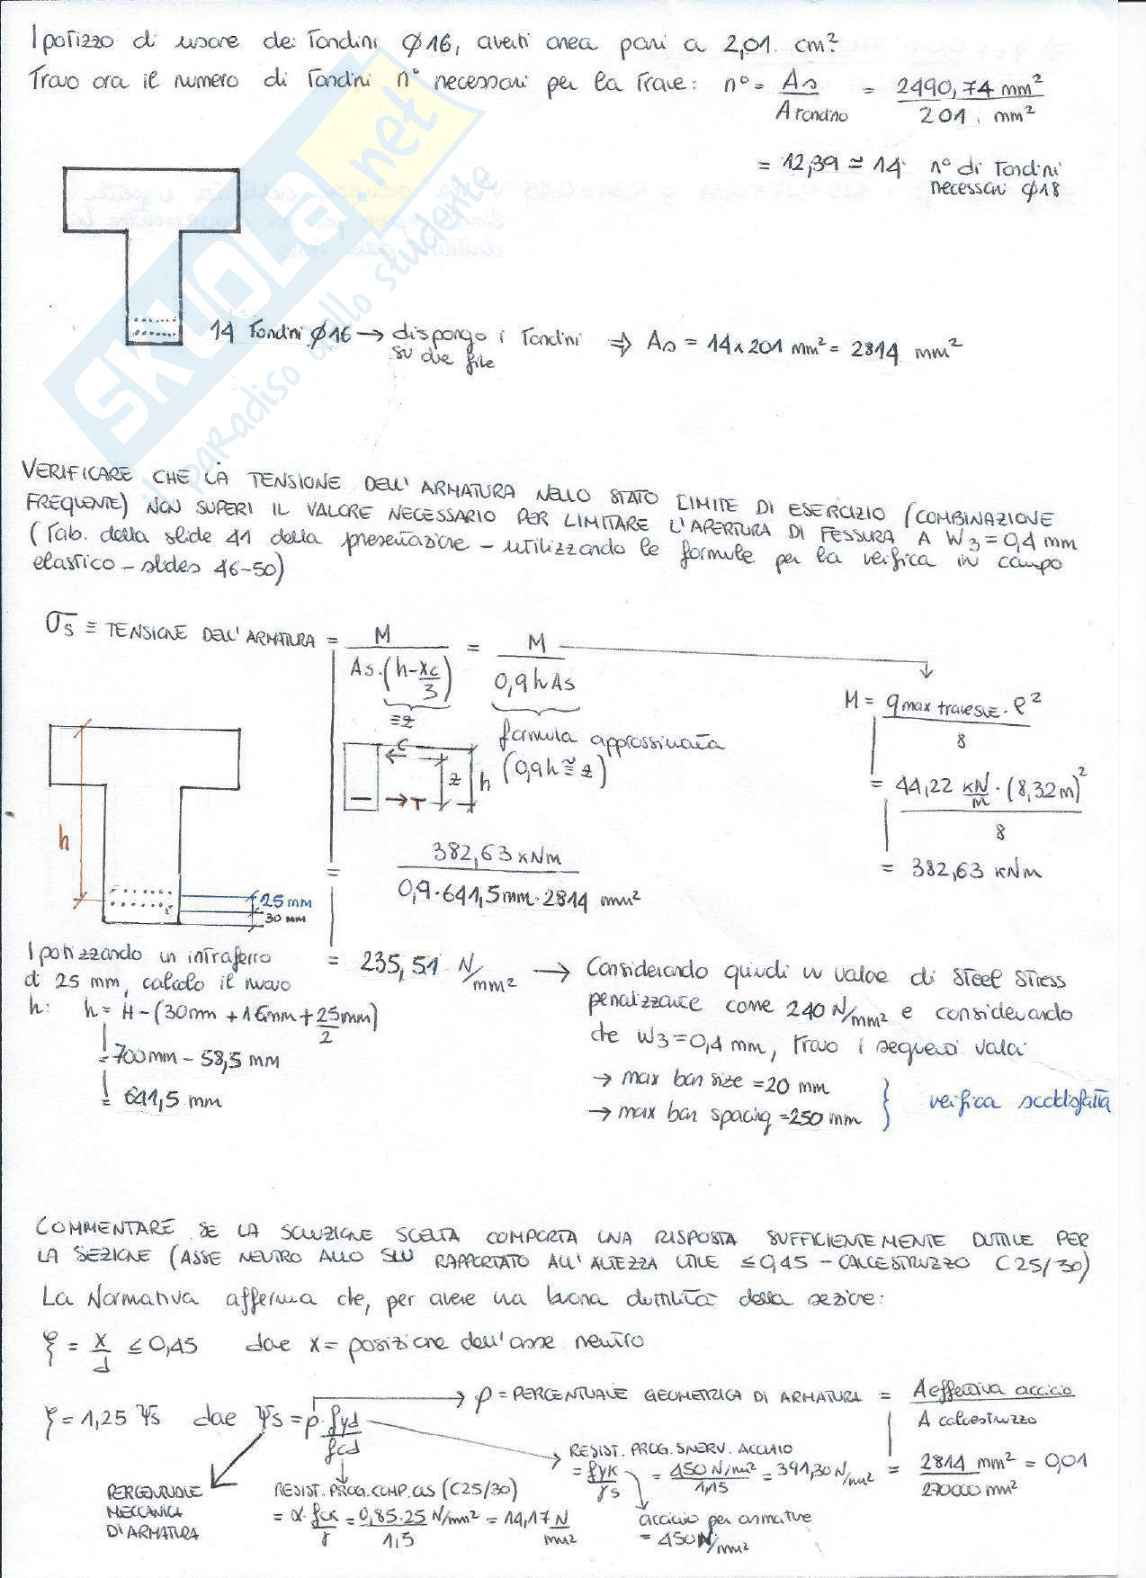 Ipotizzo di usare dei Tondini Ø16, aventi area pari a 2,01 cm².
Trovo ora il numero di Tondini n° necessari per la Trave: n° = As / A tondino = 2490,74 mm² / 201 mm²
= 12,39 ≅ 14 n° di Tondini necessari Ø18
14 Tondini Ø16 → dispongo i Tondini su due file ⇒ As = 14 x 201 mm² = 2814 mm²
SKUOLA.net
il paradiso dello studente
VERIFICARE CHE LA TENSIONE DELL'ARMATURA NELLO STATO LIMITE DI ESERCIZIO (COMBINAZIONE
FREQUENTE) NON SUPERI IL VALORE NECESSARIO PER LIMITARE L'APERTURA DI FESSURA A W3 = 0,4 mm
(Tab. della slide 41 della presentazione - utilizzando le formule per la verifica in campo
elastico - slides 46-50)
σs ≡ TENSIONE DELL'ARMATURA = M / As·(h - xc/3) = M / 0,9 h As
≡ z
formula approssimata
(0,9h ≅ z)
M = q max trave SLE · l² / 8
= 44,22 kN/m · (8,32 m)² / 8
= 382,63 kNm
C
z
h
T
h
25 mm
30 mm
= 382,63 kNm / 0,9 · 641,5 mm · 2814 mm²
= 235,51 N/mm² → Considerando quindi un valore di steel stress
penalizzante come 240 N/mm² e considerando
che W3 = 0,4 mm, trovo i seguenti valori
→ max bar size = 20 mm
→ max bar spacing = 250 mm
verifica soddisfatta
Ipotizzando un interferro
di 25 mm, calcolo il nuovo
h: h = H - (30 mm + 16 mm + 25/2 mm)
= 700 mm - 58,5 mm
= 641,5 mm
COMMENTARE SE LA SOLUZIONE SCELTA COMPORTA UNA RISPOSTA SUFFICIENTEMENTE DUTTILE PER
LA SEZIONE (ASSE NEUTRO ALLO SLU RAPPORTATO ALL'ALTEZZA UTILE ≤ 0,45 - CALCESTRUZZO C25/30)
La Normativa afferma che, per avere una buona duttilità della sezione:
ξ = x/d ≤ 0,45 dove x = posizione dell'asse neutro
ξ = 1,25 Ψs dove Ψs = ρ · fyd / fcd
ρ = PERCENTUALE GEOMETRICA DI ARMATURA = A effettiva acciaio / A calcestruzzo
= 2814 mm² / 270000 mm² = 0,01
RESIST. PROG. SNERV. ACCIAIO
= fyk / γs = 450 N/mm² / 1,15 = 391,30 N/mm²
acciaio per armature
= 450 N/mm²
PERCENTUALE
MECCANICA
DI ARMATURA
RESIST. PROG. COMP. CLS (C25/30)
= α · fck / γ = 0,85 · 25 N/mm² / 1,5 = 14,17 N/mm²